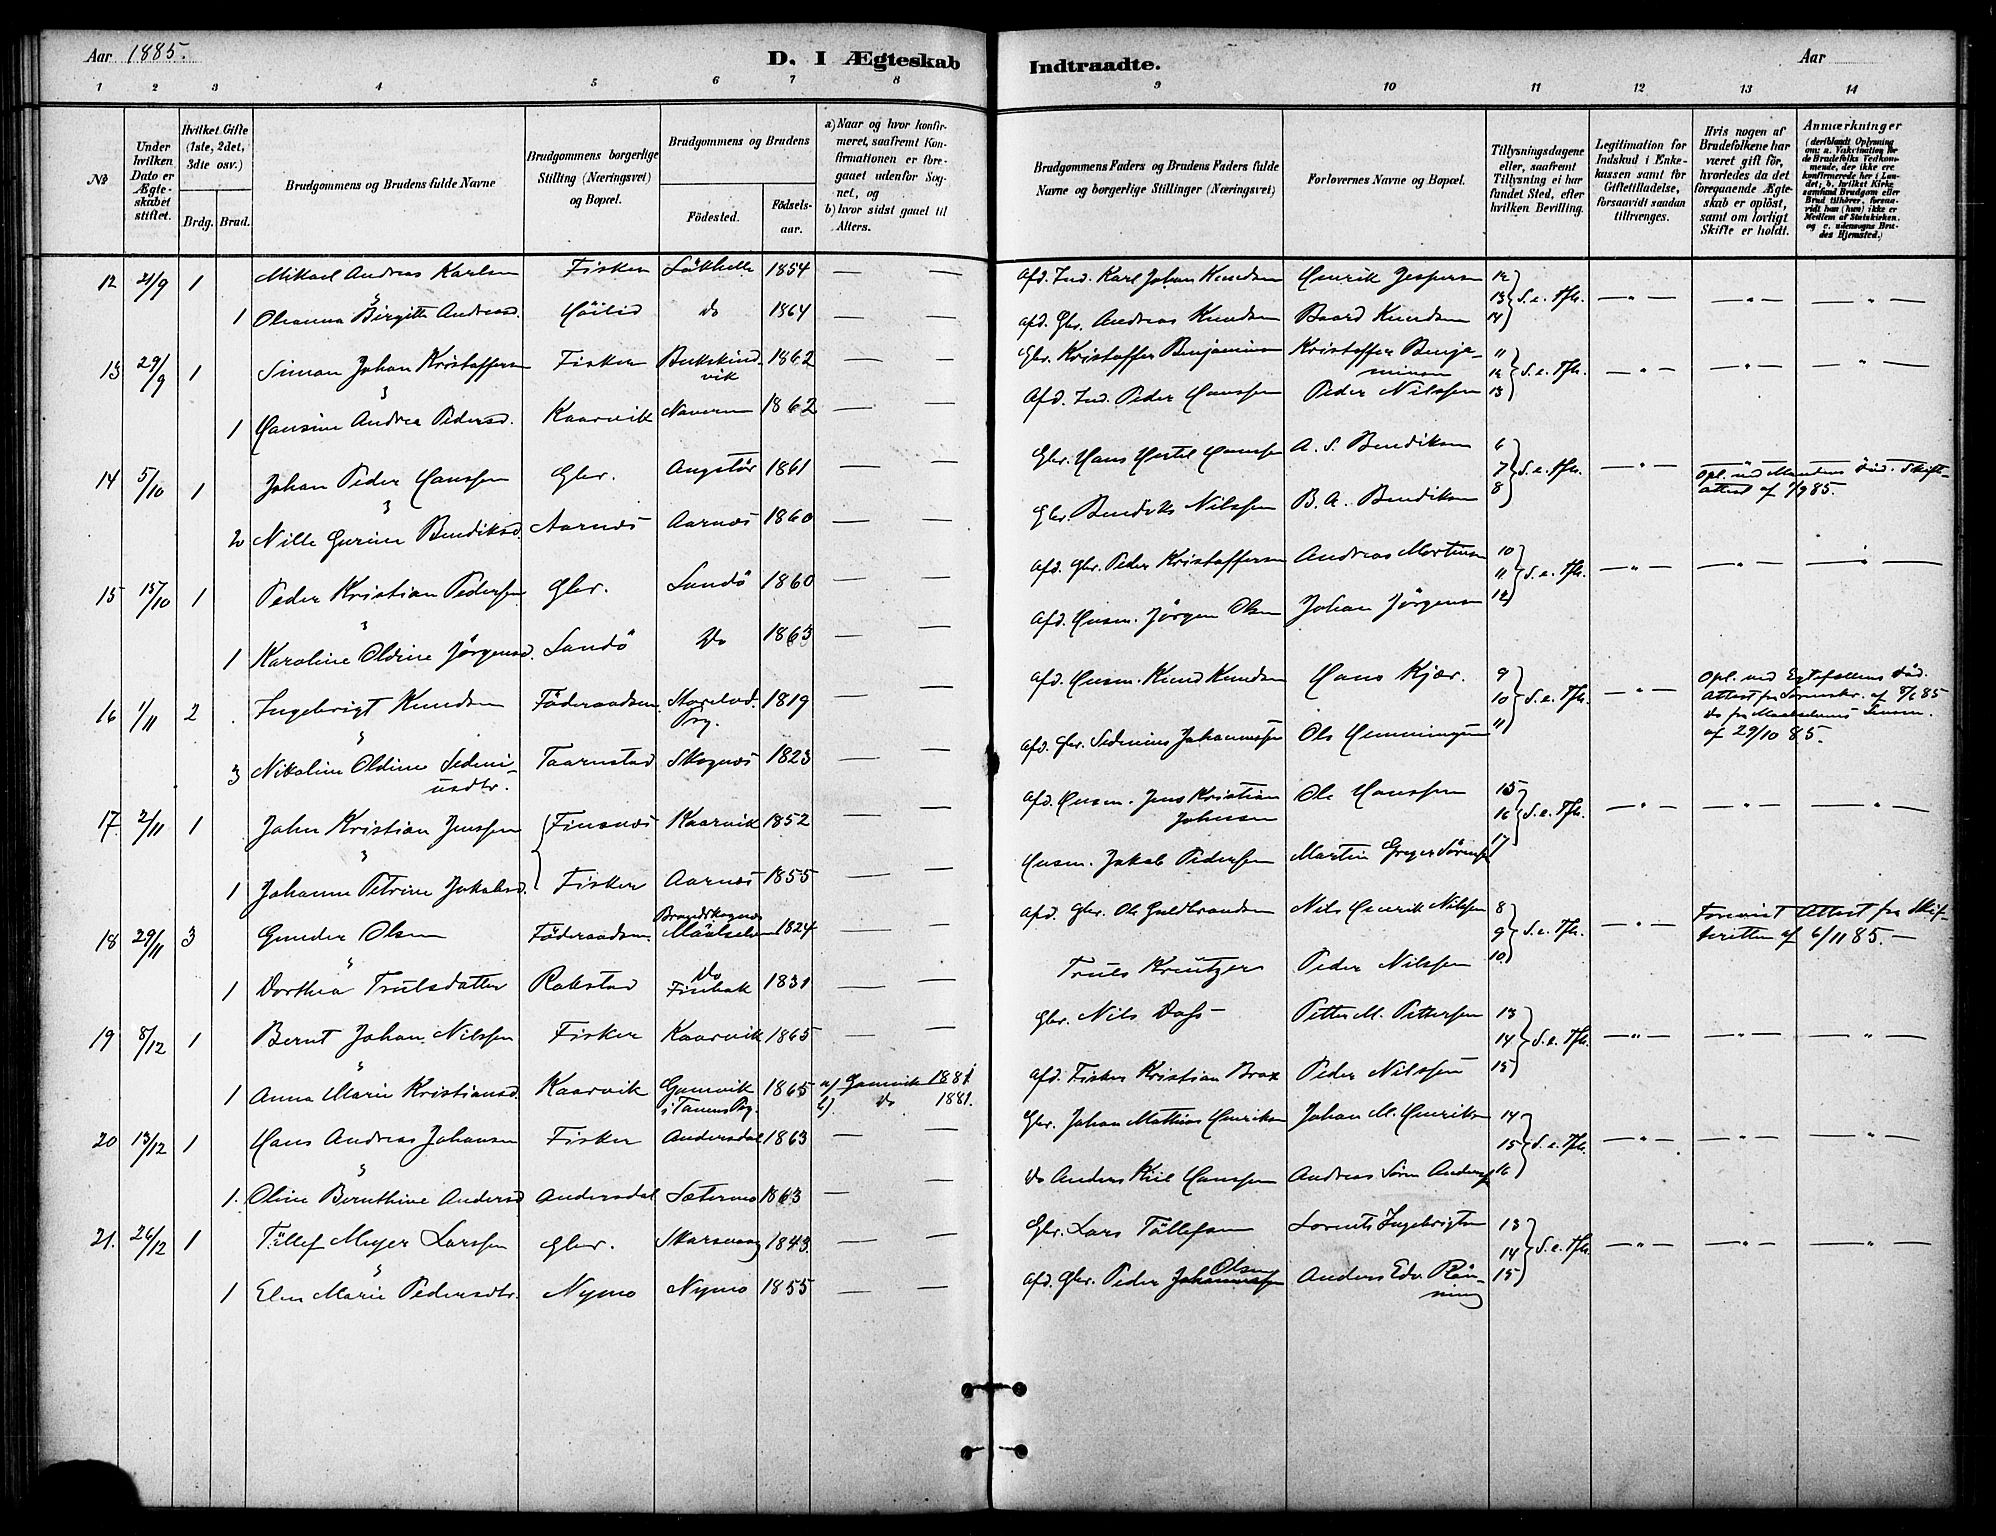 Aar 1885.
D. I Ægteskab
Indtraadte.
Aar
1 2 3 4 5 6 7 8 9 10 11 12 13 14
No
Under hvilken Dato er Ægteskabet stiftet.
Hvilket Gifte (1ste, 2det, 3die osv.)
Brdg. Brud.
Brudgommens og Brudens fulde Navne
Brudgommens borgerlige Stilling (Næringsvei) og Bopæl.
Brudgommens og Brudens
Fødested.
Fødselsaar.
a) Naar og hvor konfirmeret, saafremt Konfirmationen er foregaaet udenfor Sognet, og
b) hvor sidst gaaet til Alters.
Brudgommens Faders og Brudens Faders fulde Navne og borgerlige Stillinger (Næringsvei)
Forlovernes Navne og Bopæl.
Tillysningsdagene eller, saafremt Tillysning ei har fundet Sted, efter hvilken Bevilling.
Legitimation for Indskud i Enkekassen samt for Giftetilladelse, forsaavidt saadan tiltrænges.
Hvis nogen af Brudefolkene har været gift før, hvorledes da det foregaaende Ægteskab er opløst, samt om lovligt Skifte er holdt.
Anmærkninger (deriblandt Oplysning om: a. Vakcination for de Brudefolks Vedkommende, der ikke ere konfirmerede her i Landet; b. hvilket Kirkesamfund Brudgom eller Brud tilhører, forsaavidt han (hun) ikke er Medlem af Statskirken. og c. udensogns Brudes Hjemsted.)
12 21/9 1 Mikael Andreas Karlsen Fisker 1854 — — Afd. Ind. Karl Johan Knudsen Henrik Jespersen 12
1 Oleanna Birgitte Andreasd. Do 1864 — — Afd. Gbr. Andreas Knudsen Baard Knudsen 13 14 S. e. Tfk.
13 29/9 1 Simon Johan Kristoffersen Fisker Bukskindvik 1862 — — Gbr. Kristoffer Benjaminsen Kristoffer Benjaminsen 11 12 S. e. Tfk.
1 Hansine Andrea Pedersd. Kaarvik 1862 — — Afd. Ind. Peder Hanssen Peder Nilssen 13
14 5/10 1 Johan Peder Hanssen Gbr. Angstør 1861 — — Gbr. Hans Hertel Hanssen A. S. Bendiksen 6 7 S. e. Tfk. Opl. ved Mandens Død. Skifteattest af 1/9 85.
2 Nille Gurine Bendiksd. Aarnes Aarnes 1860 — — Gbr. Bendiks Nilssen B. A. Bendiksen 8
15 15/10 1 Peder Kristian Pedersen Gbr. Sandö 1860 — — Afd. Gbr. Peder Kristoffersen Andreas Mortensen 10 11 S. e. Tfk.
1 Karoline Oldine Jørgensd. Sandö Do 1863 — — Afd. Husm. Jørgen Olsen Johan Jørgensen 12
16 1/11 2 Ingebrigt Knudsen Föderaadsm. 1819 — — Afd. Husm. Knud Knudsen Hans Kjær. 9 10 S. e. Tfk. Opl. ved Egtefællens Død.
3 Nikoline Oldine Sedeniusdtr. Taarnstad Skognes 1823 — Afd. Gbr. Sedenius Johannessen Ole Henningsen 11 af 29/10 85.
17 2/11 1 John Kristian Jenssen Finsnes Kaarvik 1852 — — Afd. Husm. Jens Kristian Johnsen Ole Hanssen 15 16 S. e. Tfk.
1 Johanne Petrine Jakobsd. Fisker Aarnes 1855 — — Husm. Jakob Pedersen Martin Greger Sørensen 17
18 29/11 3 Gunder Olsen Föderaadsm. Brandskognes Maalselven 1824 — — Afd. Gbr. Ole Guldbrandsen Nils Henrik Nilssen 8 9 S. e. Tfk. Forevist Attest fra Skifteretten af 6/11 85. —
1 Dorthea Trulsdatter Rakstad Do Finbak 1831 — — Truls Kreutzer Peder Nilssen 10
19 8/12 1 Bernt Johan Nilssen Fisker Kaarvik 1865 — — Gbr. Nils Dass Petter M. Pettersen 13 14 S. e. Tfk.
1 Anna Marie Kristiansd. Kaarvik Gamvik i Tanens Prg. 1865 a) Gamvik 1881 b) Do 1881. Afd. Fisker Kristian Brox Peder Nilssen 15
20 13/12 1 Hans Andreas Johansen Fisker Andersdal 1863 — — Gbr. Johan Mathias Henriksen Johan M. Henriksen 14 15 S. e. Tfk.
1. Oline Bernthine Andersd. Andersdal Sætermo 1863 — — Do Anders Kiil Hanssen Andreas Sørn Anderss. 16
21. 26/12 1 Töllef Meyer Larssen Gbr. 1843. — — Gbr. Lars Töllefsen Lorents Ingebrigtsen 13 14 S. e. Tfk.
1 Elen Marie Pedersdtr. Nymo Nymo 1855 — — Afd. Gbr. Peder Johannessen Olsen Anders Edv. Rönning 15